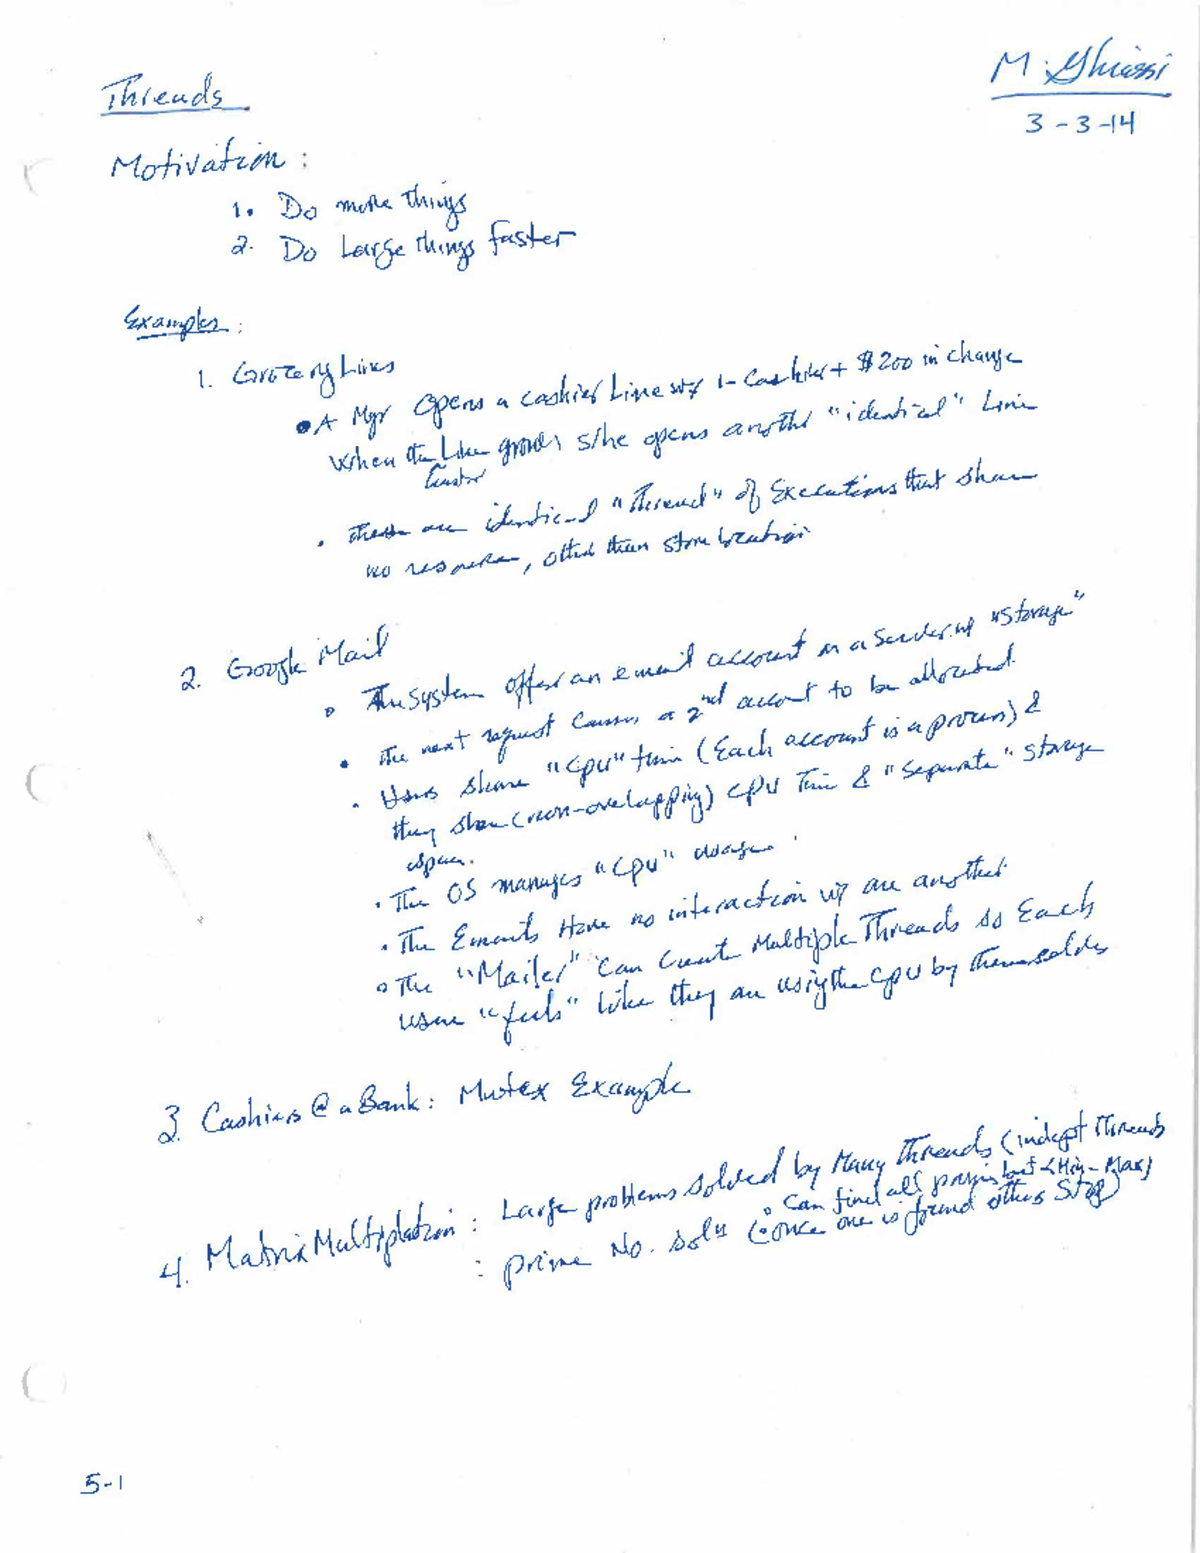 M. Ghiassi
3-3-14
Threads
Motivation:
1. Do more things
2. Do Large things faster
Examples:
1. Grocery Lines
• A Mgr opens a cashier Line w/ 1-Cashier + $200 in change
When the Line grows s/he opens another "identical" Line
faster
• These are identical "Thread" of Executions that share
no resource, other than store location
2. Google Mail
• The system offer an email account on a server w/ "storage"
• The next request causes a 2nd account to be allocated.
• Users share "CPU" time (Each account is a process) &
they share (non-overlapping) CPU Time & "separate" storage
space.
• The OS manages "CPU" usage.
• The Emails Have no interaction w/ one another
• The "Mailer" can create Multiple Threads so Each
user "feels" like they are using the CPU by themselves
3. Cashiers @ a Bank: Mutex Example
4. Matrix Multiplation: Large problems solved by Many Threads (indept Threads
• can find all primes but <Min-Max)
: prime No. solu (once one is found others stop)
5-1